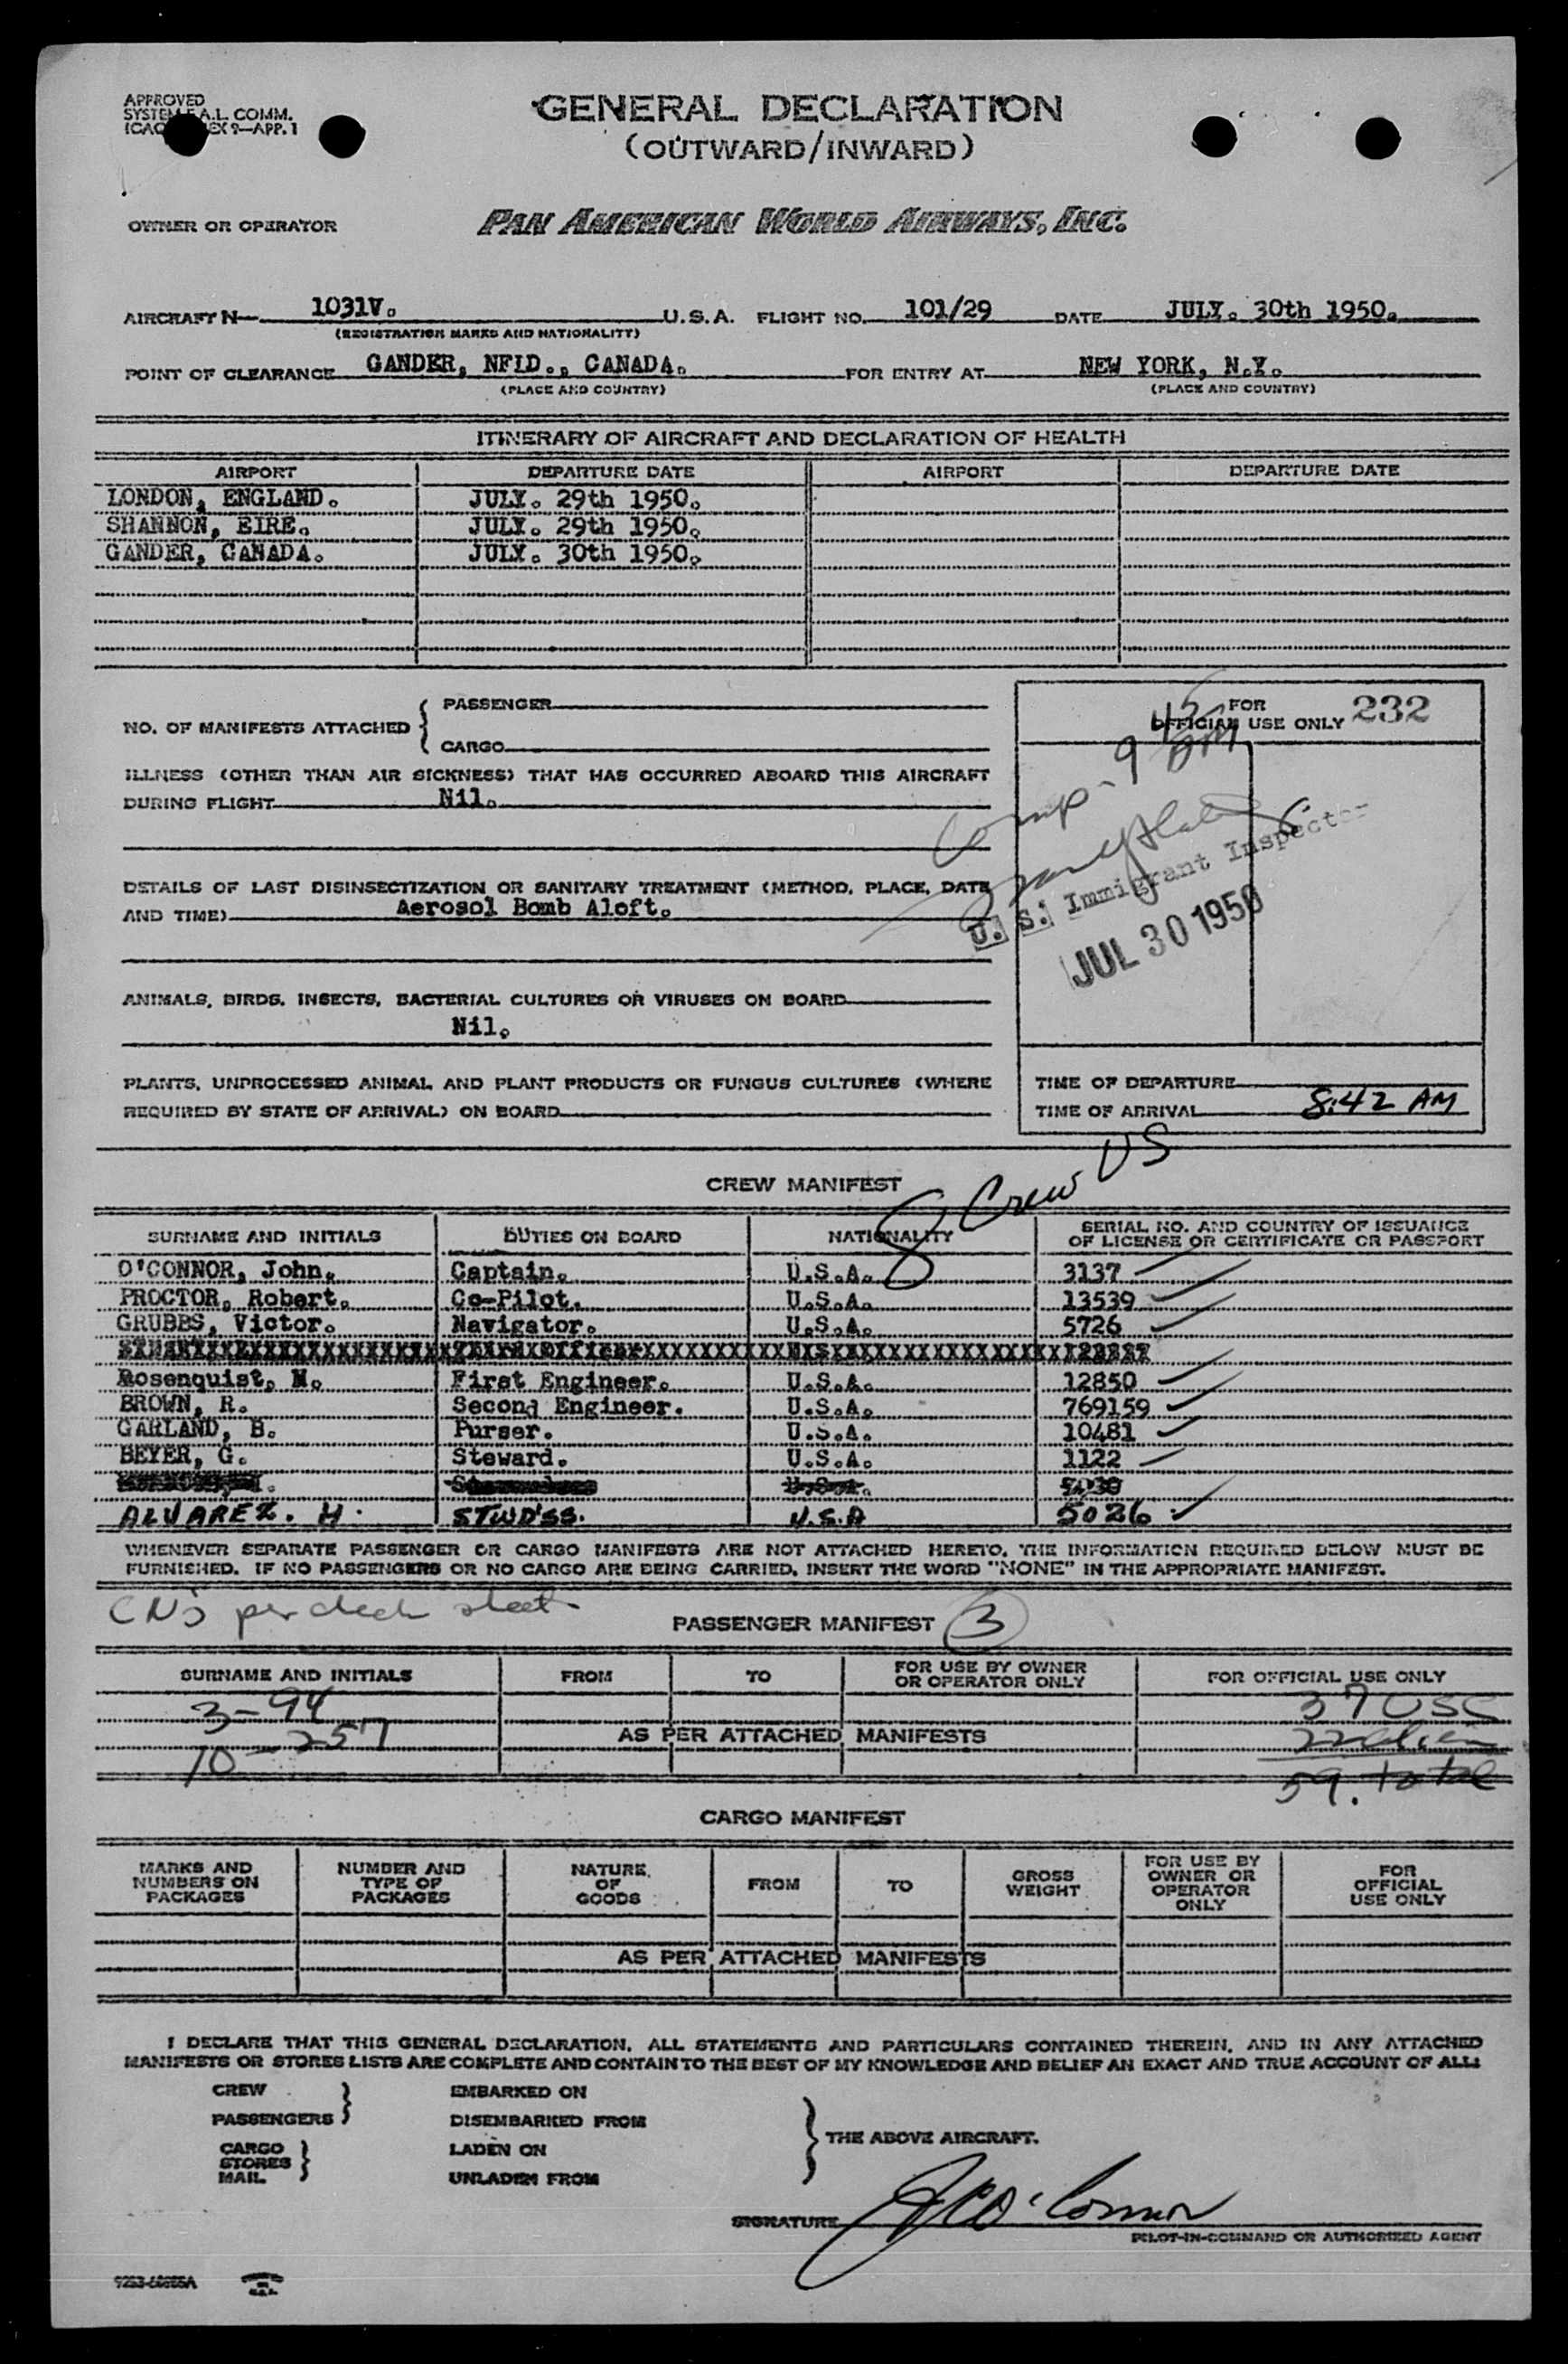 APPROVED
GENERAL DECLARATION
SYSTEM F.A.L. COMM.
(OUTWARD/INWARD)
OWNER OR OPERATOR PAN AMERICAN WORLD AIRWAYS, INC.
AIRCRAFT N— 1031V. U.S.A. FLIGHT NO. 101/29 DATE JULY. 30th 1950.
(REGISTRATION MARKS AND NATIONALITY)
POINT OF CLEARANCE GANDER, NFLD., CANADA. FOR ENTRY AT NEW YORK, N.Y.
(PLACE AND COUNTRY) (PLACE AND COUNTRY)
ITINERARY OF AIRCRAFT AND DECLARATION OF HEALTH
AIRPORT DEPARTURE DATE AIRPORT DEPARTURE DATE
LONDON, ENGLAND. JULY. 29th 1950.
SHANNON, EIRE. JULY. 29th 1950.
GANDER, CANADA. JULY. 30th 1950.
NO. OF MANIFESTS ATTACHED { PASSENGER
CARGO
FOR
OFFICIAL USE ONLY 232
ILLNESS (OTHER THAN AIR SICKNESS) THAT HAS OCCURRED ABOARD THIS AIRCRAFT
DURING FLIGHT Nil.
Comp - 9 45 AM
U. S. Immigrant Inspector
JUL 30 1950
DETAILS OF LAST DISINSECTIZATION OR SANITARY TREATMENT (METHOD, PLACE, DATE
AND TIME) Aerosol Bomb Aloft.
ANIMALS, BIRDS, INSECTS, BACTERIAL CULTURES OR VIRUSES ON BOARD
Nil.
PLANTS, UNPROCESSED ANIMAL AND PLANT PRODUCTS OR FUNGUS CULTURES (WHERE
REQUIRED BY STATE OF ARRIVAL) ON BOARD
TIME OF DEPARTURE
TIME OF ARRIVAL 8:42 AM
CREW MANIFEST
8 Crew US
SURNAME AND INITIALS DUTIES ON BOARD NATIONALITY SERIAL NO. AND COUNTRY OF ISSUANCE
OF LICENSE OR CERTIFICATE OR PASSPORT
O'CONNOR, John. Captain. U.S.A. 3137
PROCTOR, Robert. Co-Pilot. U.S.A. 13539
GRUBBS, Victor. Navigator. U.S.A. 5726
Rosenquist, N. First Engineer. U.S.A. 12850
BROWN, R. Second Engineer. U.S.A. 769159
GARLAND, B. Purser. U.S.A. 10481
BEYER, G. Steward. U.S.A. 1122
ALVAREZ. H. STWD'SS. U.S.A 5026
WHENEVER SEPARATE PASSENGER OR CARGO MANIFESTS ARE NOT ATTACHED HERETO, THE INFORMATION REQUIRED BELOW MUST BE
FURNISHED. IF NO PASSENGERS OR NO CARGO ARE BEING CARRIED, INSERT THE WORD "NONE" IN THE APPROPRIATE MANIFEST.
CN's per check sheet
PASSENGER MANIFEST 3
SURNAME AND INITIALS FROM TO FOR USE BY OWNER
OR OPERATOR ONLY FOR OFFICIAL USE ONLY
3-94 37 USC
10-257 AS PER ATTACHED MANIFESTS
59. total
CARGO MANIFEST
MARKS AND
NUMBERS ON
PACKAGES
NUMBER AND
TYPE OF
PACKAGES
NATURE
OF
GOODS
FROM
TO
GROSS
WEIGHT
FOR USE BY
OWNER OR
OPERATOR
ONLY
FOR
OFFICIAL
USE ONLY
AS PER ATTACHED MANIFESTS
I DECLARE THAT THIS GENERAL DECLARATION, ALL STATEMENTS AND PARTICULARS CONTAINED THEREIN, AND IN ANY ATTACHED
MANIFESTS OR STORES LISTS ARE COMPLETE AND CONTAIN TO THE BEST OF MY KNOWLEDGE AND BELIEF AN EXACT AND TRUE ACCOUNT OF ALL:
CREW } EMBARKED ON
PASSENGERS DISEMBARKED FROM
CARGO } LADEN ON
STORES
MAIL UNLADEN FROM
} THE ABOVE AIRCRAFT.
SIGNATURE J C O'Connor
PILOT-IN-COMMAND OR AUTHORIZED AGENT